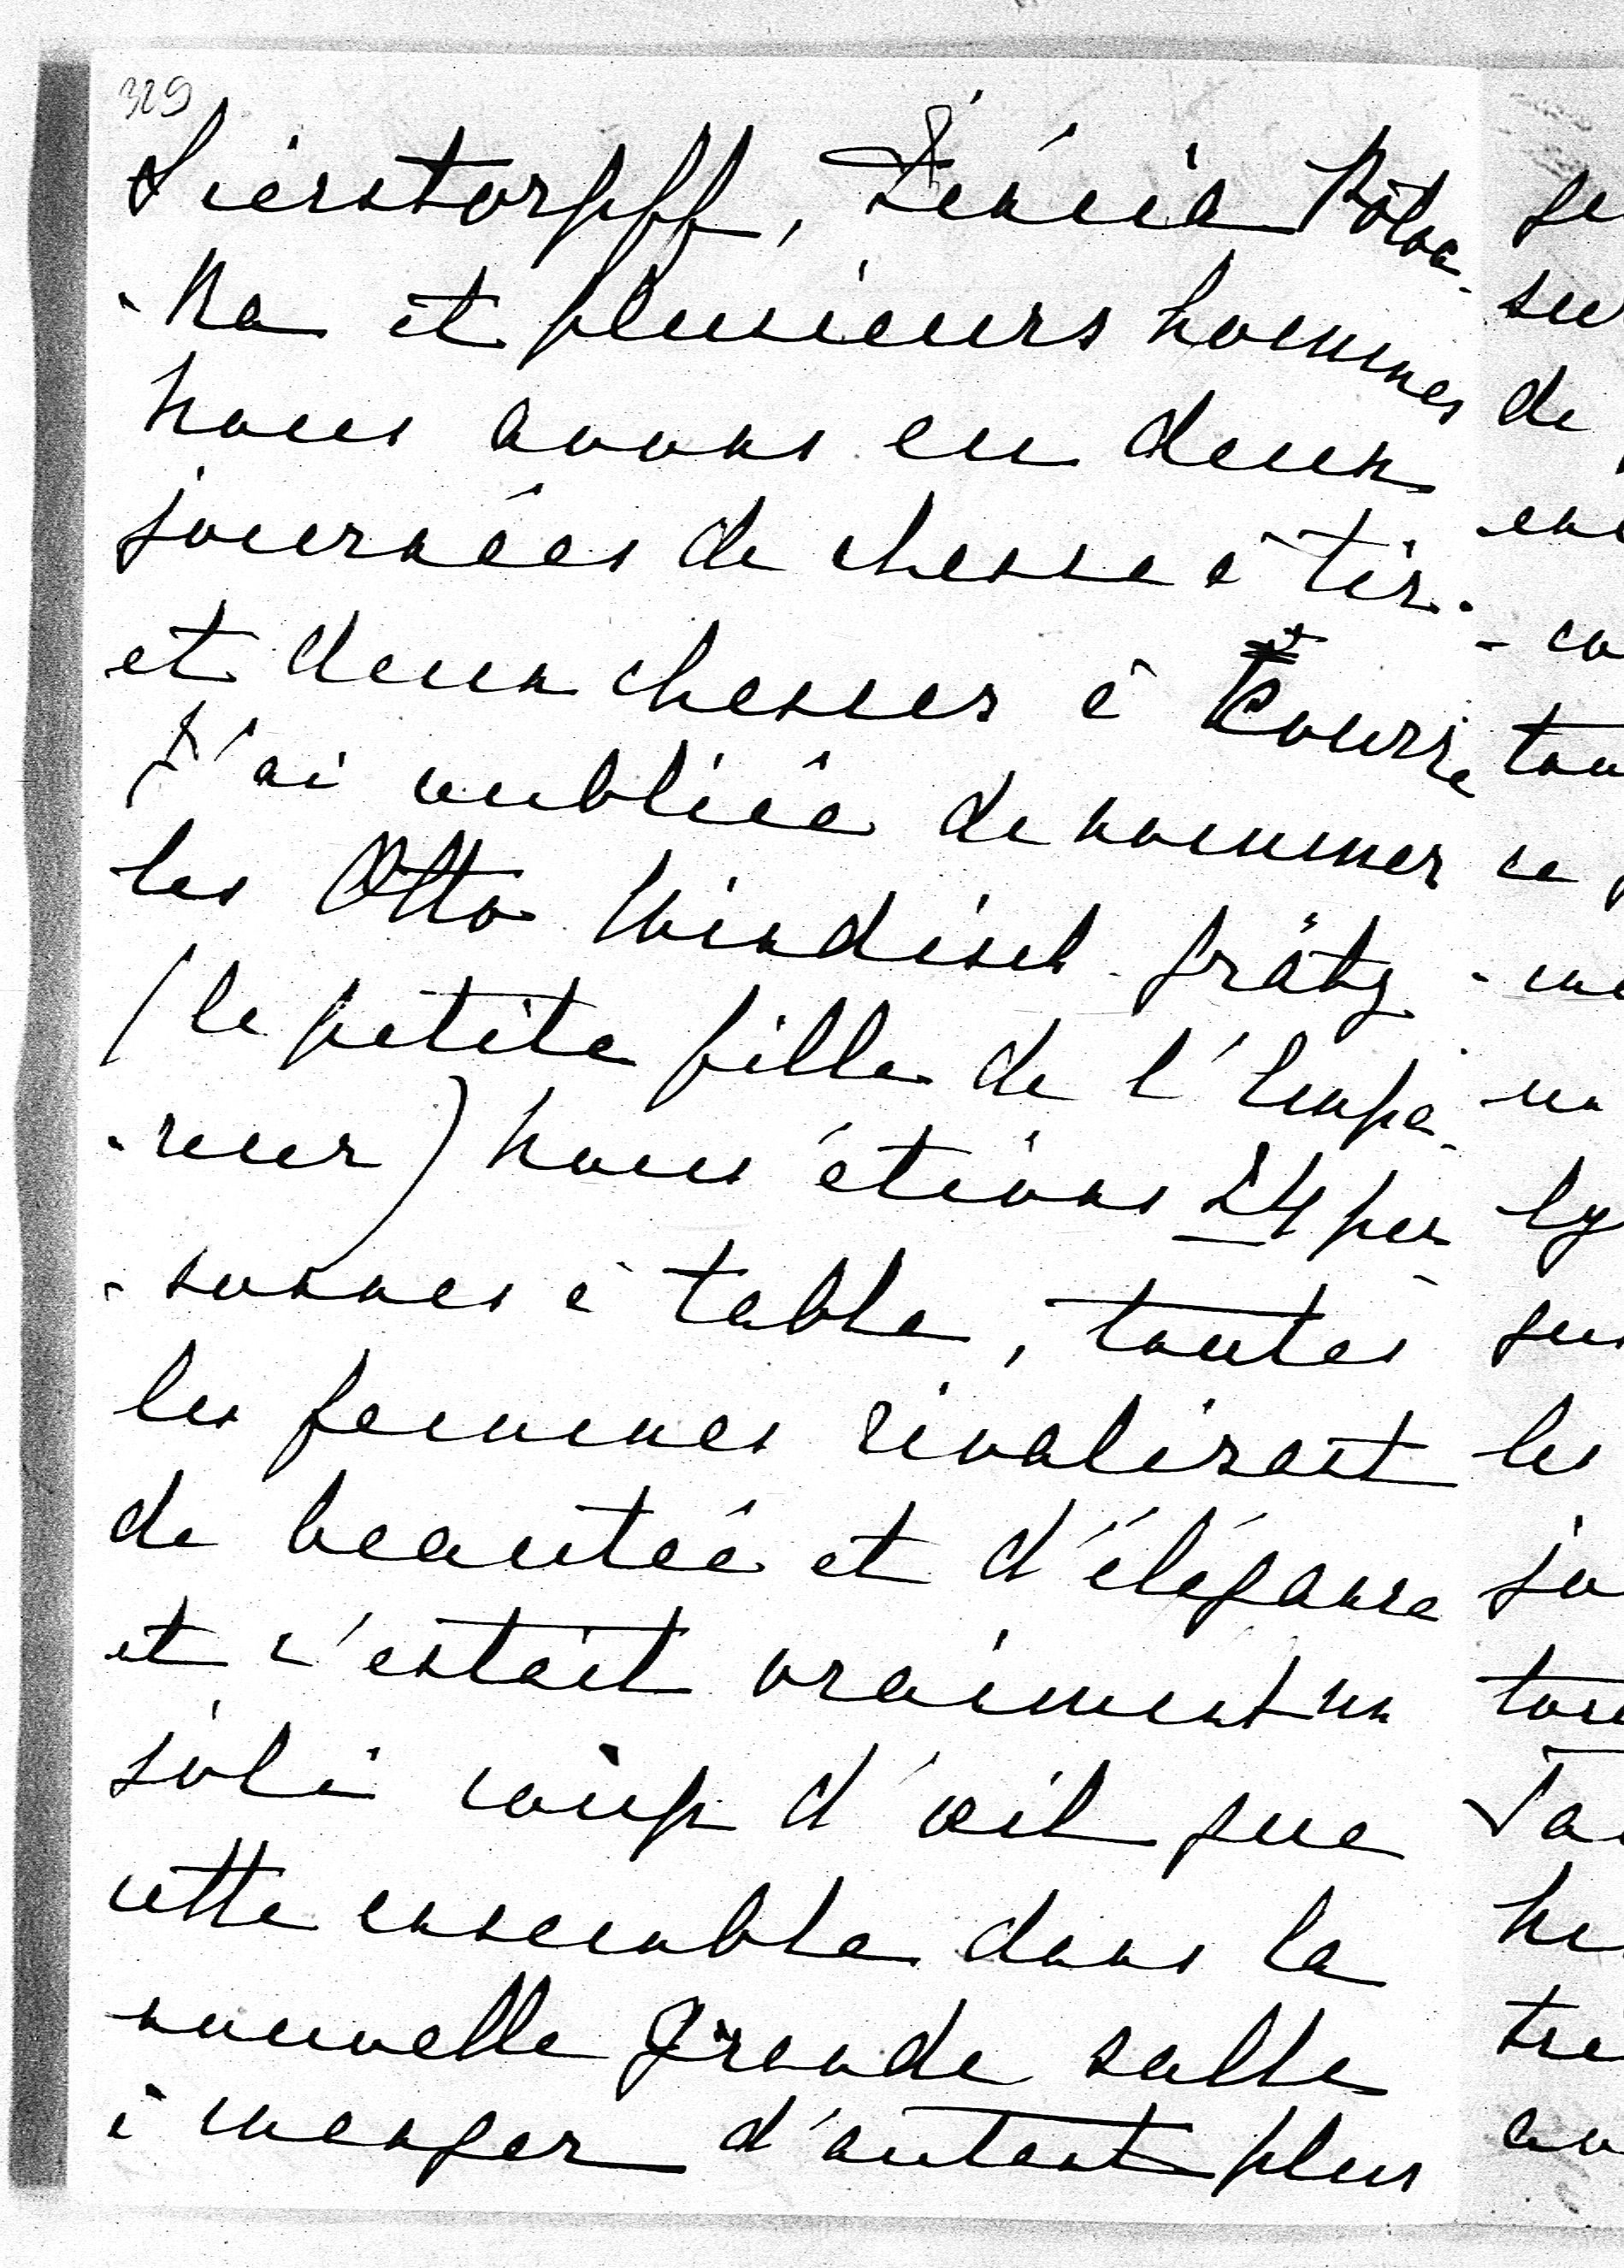 329
Sierstorpff, Fénéia Potoc-
-ka et plusieurs hommes
nous avons eu deux
journées de chasse à tir.
et deux chasses à Courre
J'ai oubliée de nommer
les Otto Windisch-grätz
(la petite fille de l'Empé-
-reur) nous étions 24 per
-sonnes à table, toutes
les femmes rivalisait
de beautée et d'élégance
et c'estait vraiment un
joli coup d'œil que
cette ensemble dans la
nouvelle grande salle
à manger d'autant plus